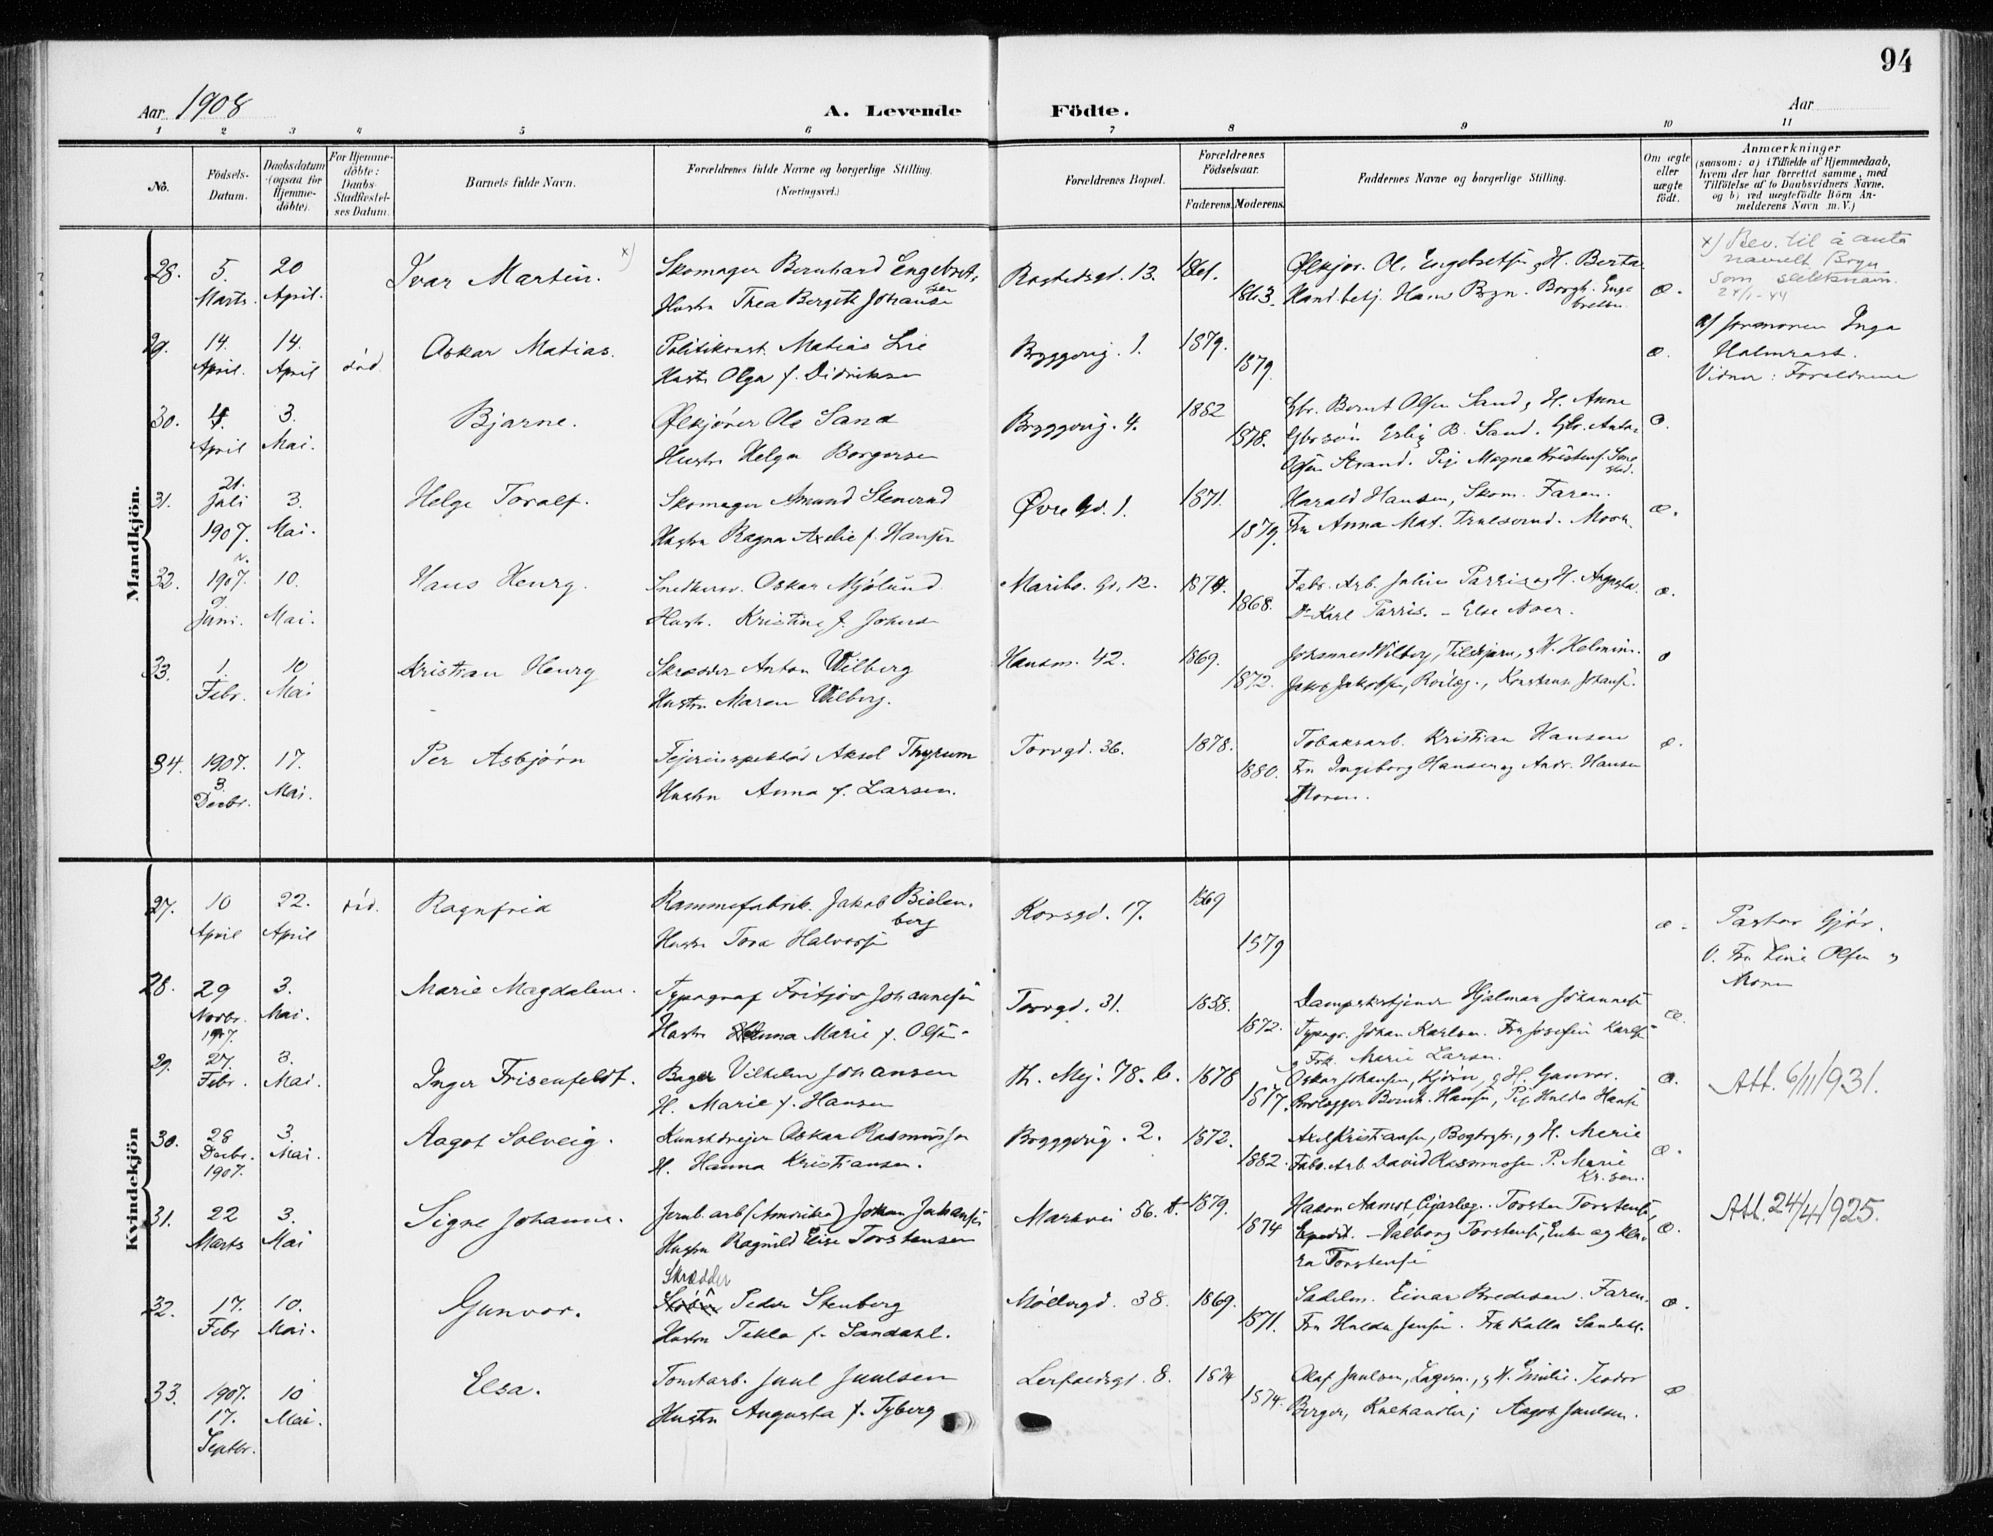 94
Aar 1908
A. Levende Födte.
Aar
1 2 3 4 5 6 7 8 9 10 11
No.
Födsels-
Datum.
Daabsdatum
(ogsaa for
Hjemme-
döbte).
For Hjemme-
döbte:
Daabs-
Stadfæstel-
ses Datum.
Barnets fulde Navn.
Forældrenes fulde Navne og borgerlige Stilling.
(Næringsvei.)
Forældrenes Bopæl.
Forældrenes
Födselsaar.
Faderens. Moderens.
Faddernes Navne og borgerlige Stilling.
Om ægte
eller
uægte
födt.
Anmærkninger
(saasom: a) i Tilfælde af Hjemmedaab,
hvem der har forrettet samme, med
Tilföielse af to Daabsvidners Navne,
og b) ved uægtefödte Börn An-
melderens Navn m. V.)
Mandkjön.
28. 5. Marts. 20 April. Ivar Martin. x)
Skomager Bernhard Engebret-
sen
Hustru Thea Bergitte Johansen
13. 1861. 1863.
Ølkjør. Ol. Engebretsen, H. Berta
Hans Bryn. Borgh. Enge
bretsen. æ.
x) Bev. til å anta
navnet Bryn
som slektsnavn.
24/1-44
29. 14. April. 14. April død. Oskar Matias.
Politikonst. Matias Lie
Hustru Olga f. Didriksen
Bryggerig. 1. 1879. 1879. æ.
a) Jormoren Inga
Halmrast.
Vidner: Forældrene
30. 4. April 3. Mai. Bjarne.
Ølkjører Ole Sand
Hustru Helga Borgersen
Bryggerig. 4. 1882 1878.
Gbr. Bernt Olsen Sand, H. Anne
B. Sand. Gbr. Anton
Olsen Strand. Pig. Magna Kristens.
31. 21. Juli 1907. 3. Mai. Helge Toralf.
Skomager Amund Stenerud
Hustru Ragna Axelie f. Hansen
Øvre Gd. 1. 1871. 1879.
Harald Hansen, Skom. Faren.
Fru Anna Mat. Trulserud. Moren. æ.
32. 1907. 9 Juni. 10. Mai. Hans Henry.
Snedkersv. Oskar Mjölund
Hustr. Kristine f.
Maribo. Gd. 12. 1874. 1868.
Fabr. Arb. Julius Parris og H. Augusta.
Karl Parris. - Else Aver. æ.
33. 1. Febr. 10 Mai Kristian Henry
Skrædder Anton Wilberg
Hustru Maren Wilberg.
Hausm. 42. 1869. 1872.
Johannes Wilberg, H. Helmine.
Jakob Jakobsen, Konstanse Johans.
34. 1907. 3 Decbr. 17. Mai. Per Asbjørn
Feierinspektør Aksel Thyrum
Hustru Anna f. Larsen.
Torvgd. 36. 1878. 1880.
Tobaksarb. Kristian Hansen
Fru Ingeborg Hansen og Andr. Hansen
Moren. æ.
Kvindekjön
27. 10 April 22. April død. Ragnfrid
Rammefabrik. Jakob Bielen-
berg
Hustru Tora Halvorsen
Korsgd. 17. 1869 1879 æ.
Pastor Gjør.
V. Fru Line Olsen og
Moren
28. 29 Novbr. 1907. 3. Mai. Marie Magdalene.
Typograf Fritjov Johannesen
Hustru Hanna Marie f. Olsen.
Torvgd. 31. 1858. 1872.
Hjalmar Johannesen
Typogr. Johan Karlsen. Fru Josefine Karlsen
og Frk. Marie Larsen. æ.
29. 27. Febr. 3. Mai. Inger Frisenfeldt.
Bager Vilhelm Johansen
H. Marie f. Hansen
Th. Mej. 78. b. 1878 1877.
Oskar Johansen, Kjörer, og H. Gunvor.
Brolægger Bernh. Hansen, Pig. Hulda Hansen æ.
Att. 6/11/931.
30. 28 Decbr. 1907. 3. Mai. Aagot Solveig.
Kunstdreier Oskar Rasmussen
H. Hanna Kristiansen.
Bryggerig. 2. 1872. 1882.
Axel Kristiansen, Bogtryk., og H. Marie
Fabr. Arb. David Rasmussen. P. Marie
Kr.sen. æ.
31. 22 Marts 3. Mai Signe Johanne.
Jernb. arb. (Amerika) Johan Johansen
Hustru Ragnild Elise Torstensen
Markvei 56. 1879. 1874
Hakon Aamot. Torsten Torstensen,
Expedit. - Valborg Torstensen, Enke og Kla-
ra Torstensen æ.
Att. 24/4/925.
32. 17. Febr 10. Mai. Gunvor.
Skrædder
Peder Stenberg
Hustru Tekla f. Sandahl.
Møllergd. 38. 1869. 1871.
Sadelm. Einar Bredesen. Faren.
Fru Hulda Jensen. Frk Kalla Sandahl. æ.
33. 1907. 17. Septbr. 10 Mai. Elsa.
Tomtarb. Juul Juulsen
Hustru Augusta f. Tyberg
Lerfaldsgt. 8. 1874 1874.
Olaf Juulsen, Lagerm., og H. Emilie. Teodor
Berger, Kulhandler; Aagot Juulsen. æ